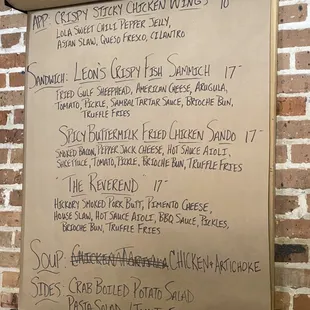 APP: CRISPY STICKY CHICKEN WINGS 10
LOLA SWEET CHILI PEPPER JELLY,
ASIAN SLAW, QUESO FRESCO, CILANTRO
SANDWICH: LEON'S CRISPY FISH SAMMICH 17-
FRIED GULF SHEEPHEAD, AMERICAN CHEESE, ARUGULA,
TOMATO, PICKLE, SAMBAL TARTAR SAUCE, BRIOCHE BUN,
TRUFFLE FRIES
SPICY BUTTERMILK FRIED CHICKEN SANDO 17-
SMOKED BACON, PEPPER JACK CHEESE, HOT SAUCE AIOLI,
TOMATO, PICKLE, BRIOCHE BUN, TRUFFLE FRIES
"THE REVEREND" 17-
HICKORY SMOKED PORK BUTT, PIMENTO CHEESE,
HOUSE SLAW, HOT SAUCE AIOLI, BBQ SAUCE, PICKLES,
BRIOCHE BUN, TRUFFLE FRIES
SOUP: CHICKEN + ARTICHOKE
SIDES: CRAB BOILED POTATO SALAD
PASTA SALAD